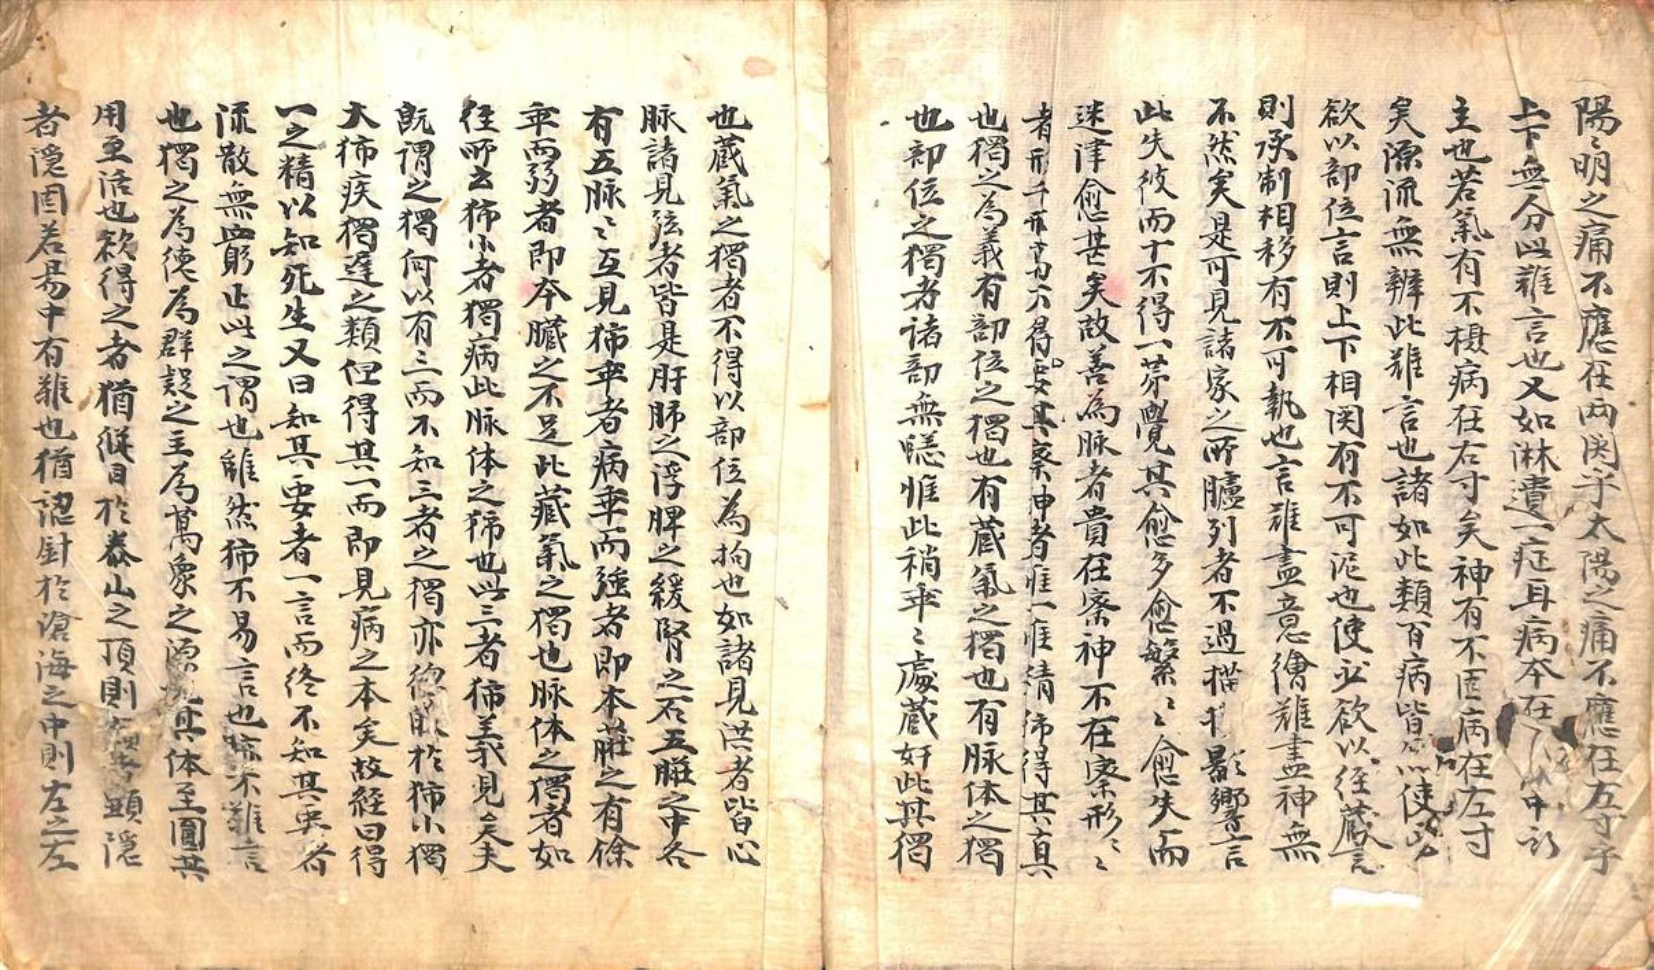 陽〻明之痛不應在两関乎太陽之痛不應在左寸乎
上下無分此難言也又如淋遺一症耳病夲在中
主也若氣有不攝病在右寸矣神有不固病在左寸
矣源流無辨此难言也諸如此類百病皆使必
欲以部位言則上下相関有不可泥也使必欲以经蔵言
則承制相移有不可執也言难盡意繪难盡神無
不然矣是可見諸家之所臚列者不過描影響言
此失彼而十不得一第覺其愈多愈繁〻愈失而
迷津愈甚矣故善為脉者貴在察神不在察形〻
者形千形萬不得其察神者惟一惟清㣇得其真
也獨之為義有部位之獨也有蔵氣之獨也有脉体之獨
也部位之獨者诸部無恙惟此稍乖〻處蔵奸此其獨
也蔵氣之獨者不得以部位為拘也如諸見洪者皆心
脉諸見弦者皆是肝肺之浮脾之緩腎之石五臟之中各
有五脉〻互見㣇乖者病乖而強者即本臟之有餘
乖而弱者即夲臓之不足此蔵氣之獨也脉体之獨者如
径所云㣇小者獨病此脉体之㣇也此三者㣇義見矣夫
既謂之獨何以有三而不知三者之獨亦於㣇小獨
大㣇疾獨遲之類但得其一而即見病之本矣故経曰得
一之精以知死生又曰知其要者一言而终不知其要者
流散無窮止此之謂也雖然㣇不易言也亦不難言
也獨之為徳為群疑之主為萬象之源其体至圓其
用至活也欲得之者猶縱目於泰山之頂則顕隠
者隠固若易中有难也猶認針於滄海之中則左之左